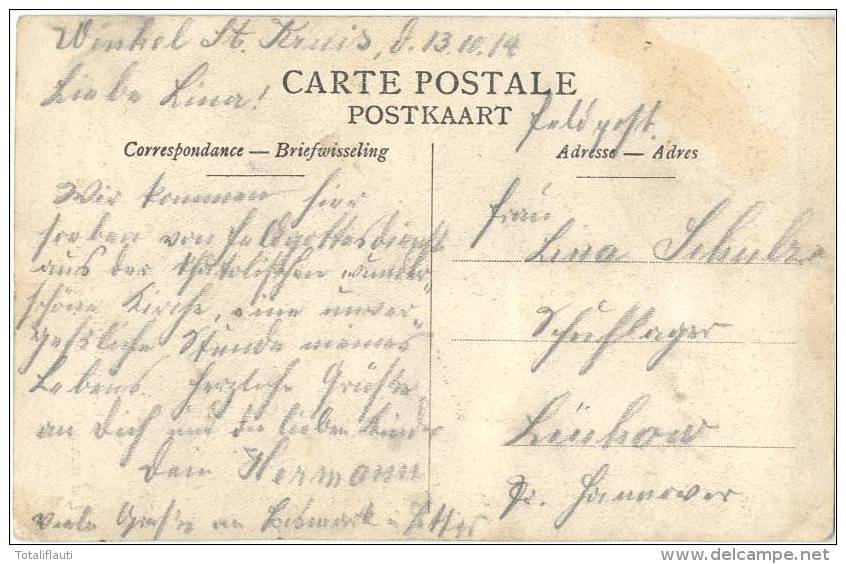 Winkel St. Kruis, d. 13.10.14
Liebe Lina!
CARTE POSTALE
POSTKAART
Feldpost.
Correspondance — Briefwisseling
Adresse — Adres
Wir kommen hier
soeben von Feldgottesdienst
aus der katolischen wunder-
schöne Kirche, eine unver-
gessliche Stunde meines
Lebens. Herzliche Grüsse
an Dich und die lieben Kinder
Dein Hermann
viele Grüsse an
Frau
Lina Schulze
Schuhlager
Lüchow
Pr. Hannover
Totaliflauti
delcampe.net